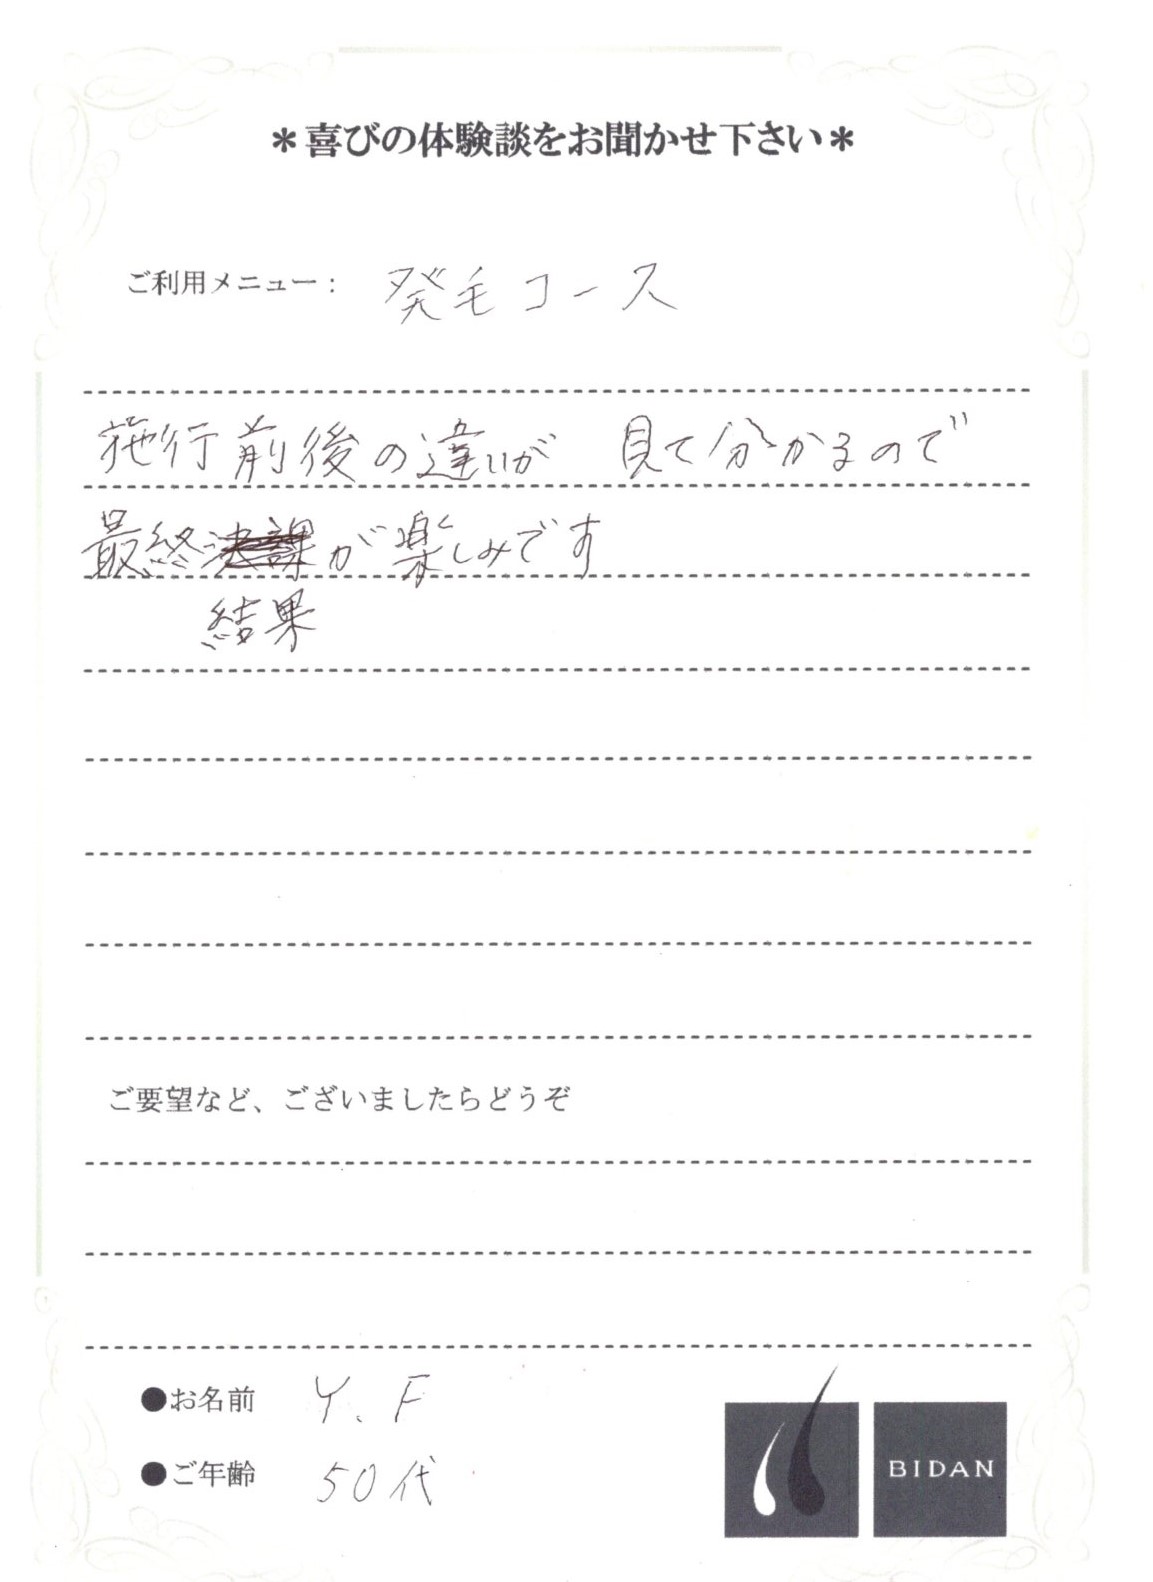 ＊喜びの体験談をお聞かせ下さい＊
ご利用メニュー： 発毛コース
施行前後の違いが 見て分かるので
最終が楽しみです
結果
ご要望など、ございましたらどうぞ
●お名前 Y.F
●ご年齢 50代
BIDAN